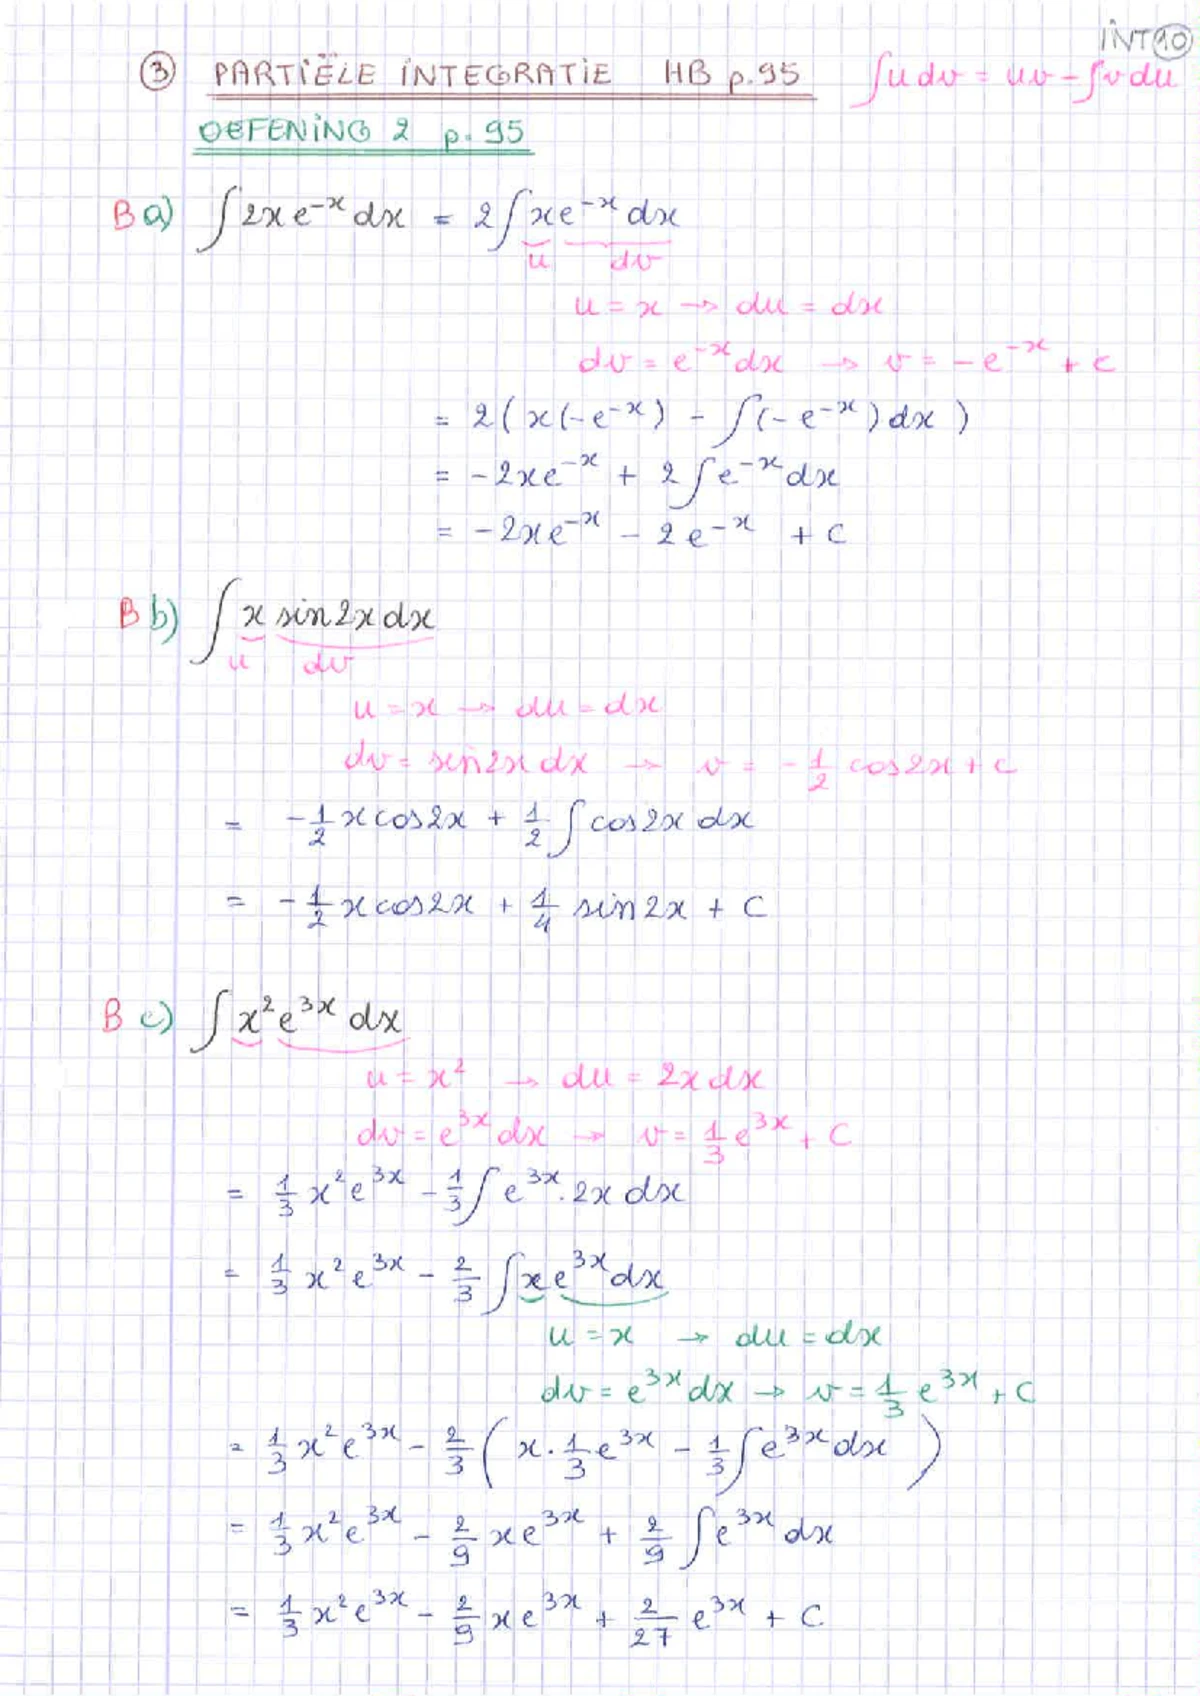 INT 10
③ PARTIËLE INTEGRATIE HB p.95 ∫u dv = uv - ∫v du
OEFENING 2 p. 95
B a) ∫2x e^{-x} dx = 2∫x e^{-x} dx
u dv
u = x → du = dx
dv = e^{-x} dx → v = -e^{-x} + c
= 2(x(-e^{-x}) - ∫(-e^{-x}) dx)
= -2xe^{-x} + 2∫e^{-x} dx
= -2xe^{-x} - 2e^{-x} + C
B b) ∫x sin2x dx
u dv
u = x → du = dx
dv = sin2x dx → v = -1/2 cos2x + c
= -1/2 x cos2x + 1/2 ∫cos2x dx
= -1/2 x cos2x + 1/4 sin2x + C
B c) ∫x²e^{3x} dx
u = x² → du = 2x dx
dv = e^{3x} dx → v = 1/3 e^{3x} + C
= 1/3 x²e^{3x} - 1/3 ∫e^{3x}.2x dx
= 1/3 x²e^{3x} - 2/3 ∫xe^{3x} dx
u = x → du = dx
dv = e^{3x} dx → v = 1/3 e^{3x} + C
= 1/3 x²e^{3x} - 2/3 (x.1/3 e^{3x} - 1/3 ∫e^{3x} dx)
= 1/3 x²e^{3x} - 2/9 xe^{3x} + 2/9 ∫e^{3x} dx
= 1/3 x²e^{3x} - 2/9 xe^{3x} + 2/27 e^{3x} + C